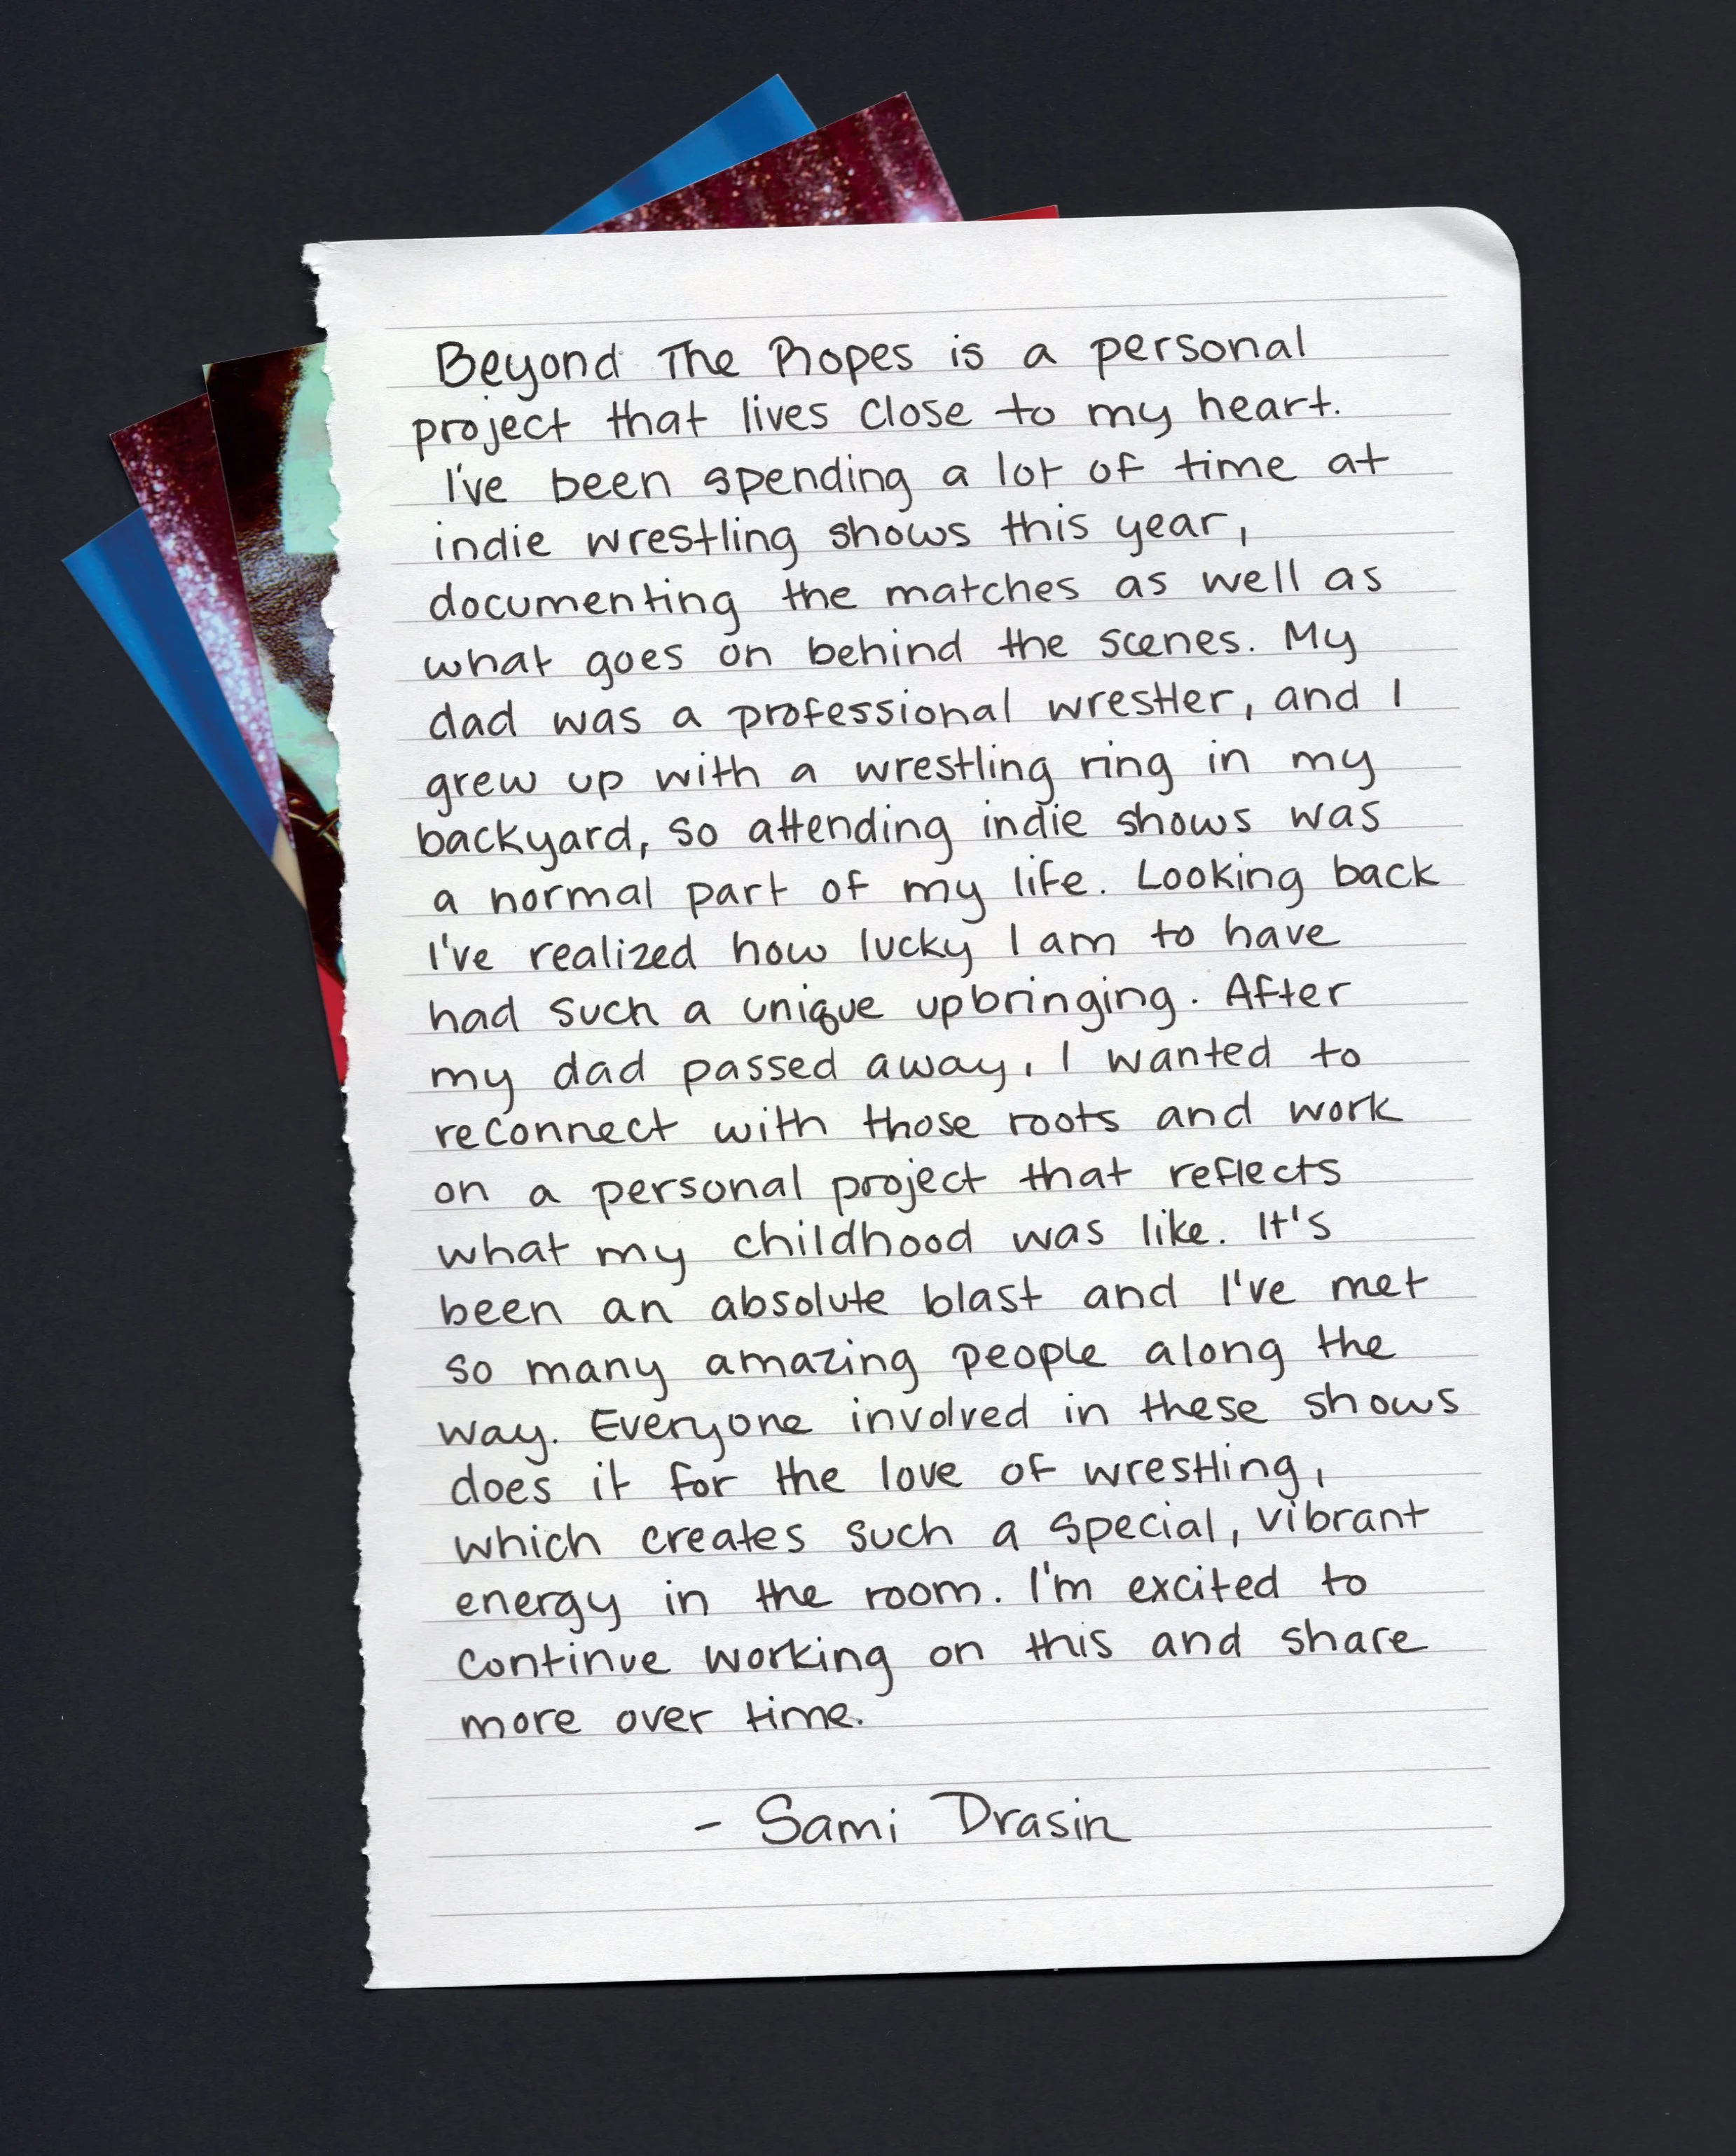 Beyond The Ropes is a personal
project that lives close to my heart.
I've been spending a lot of time at
indie wrestling shows this year,
documenting the matches as well as
what goes on behind the scenes. My
dad was a professional wrestler, and I
grew up with a wrestling ring in my
backyard, so attending indie shows was
a normal part of my life. Looking back
I've realized how lucky I am to have
had such a unique upbringing. After
my dad passed away, I wanted to
reconnect with those roots and work
on a personal project that reflects
what my childhood was like. It's
been an absolute blast and I've met
so many amazing people along the
way. Everyone involved in these shows
does it for the love of wrestling,
which creates such a special, vibrant
energy in the room. I'm excited to
continue working on this and share
more over time.
- Sami Drasin